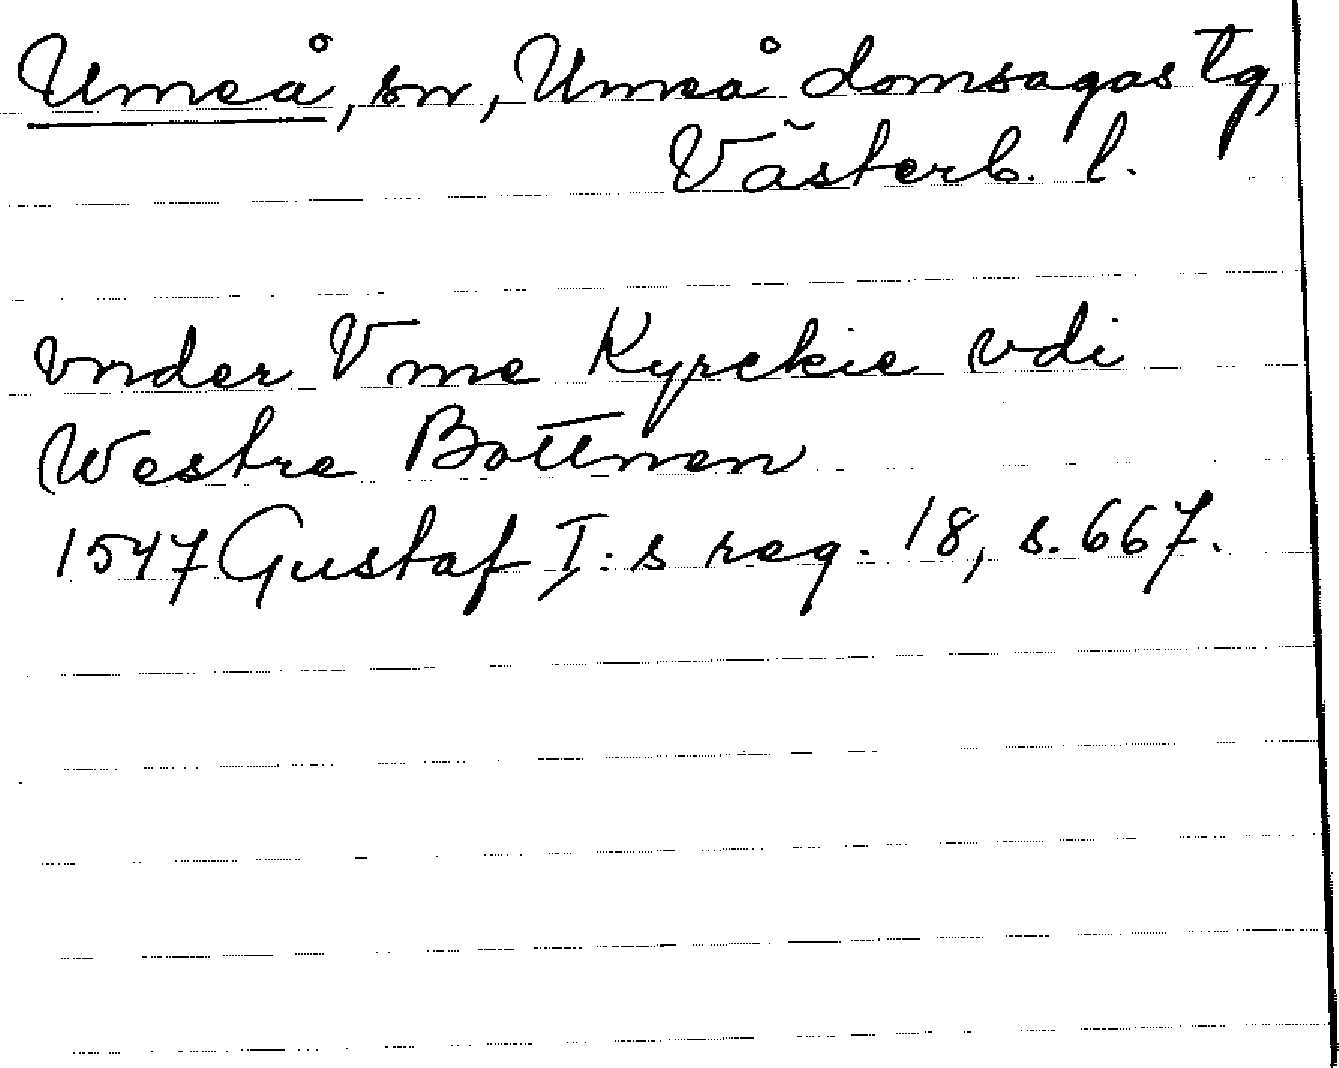 Umeå, sn, Umeå domsagas tg,
Västerb. l.
vnder Vme Kyrckie vdi
Westre Bottnen
1547 Gustaf I:s reg. 18, s. 667.